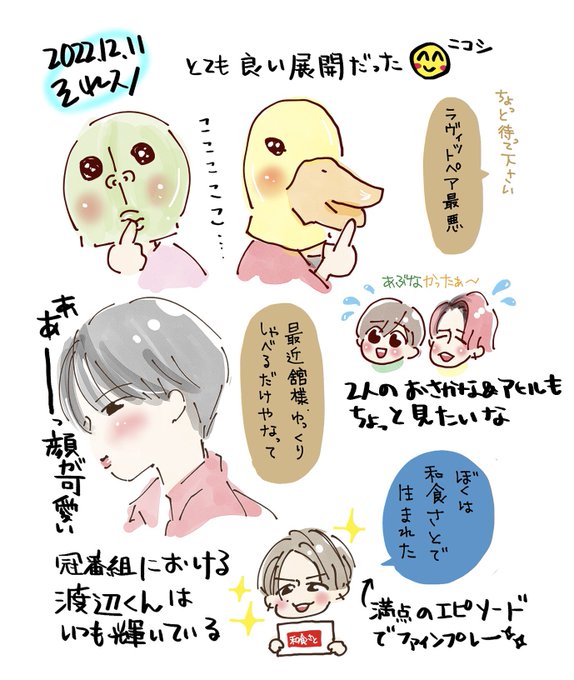 2022.12.11
それスノ
とても良い展開だった
ニコシ
ちょっと待って下さい
ラヴィットペア最悪
ここここここ....
あぶなかったぁ〜
2人のおさかな&アヒルも
ちょっと見たいな
最近舘様、ゆっくり
しゃべるだけやなって
ああーっ顔が可愛い
ぼくは
和食さとで
生まれた
冠番組における
渡辺くんは
いつも輝いている
和食さと
↑満点のエピソード
でファインプレー